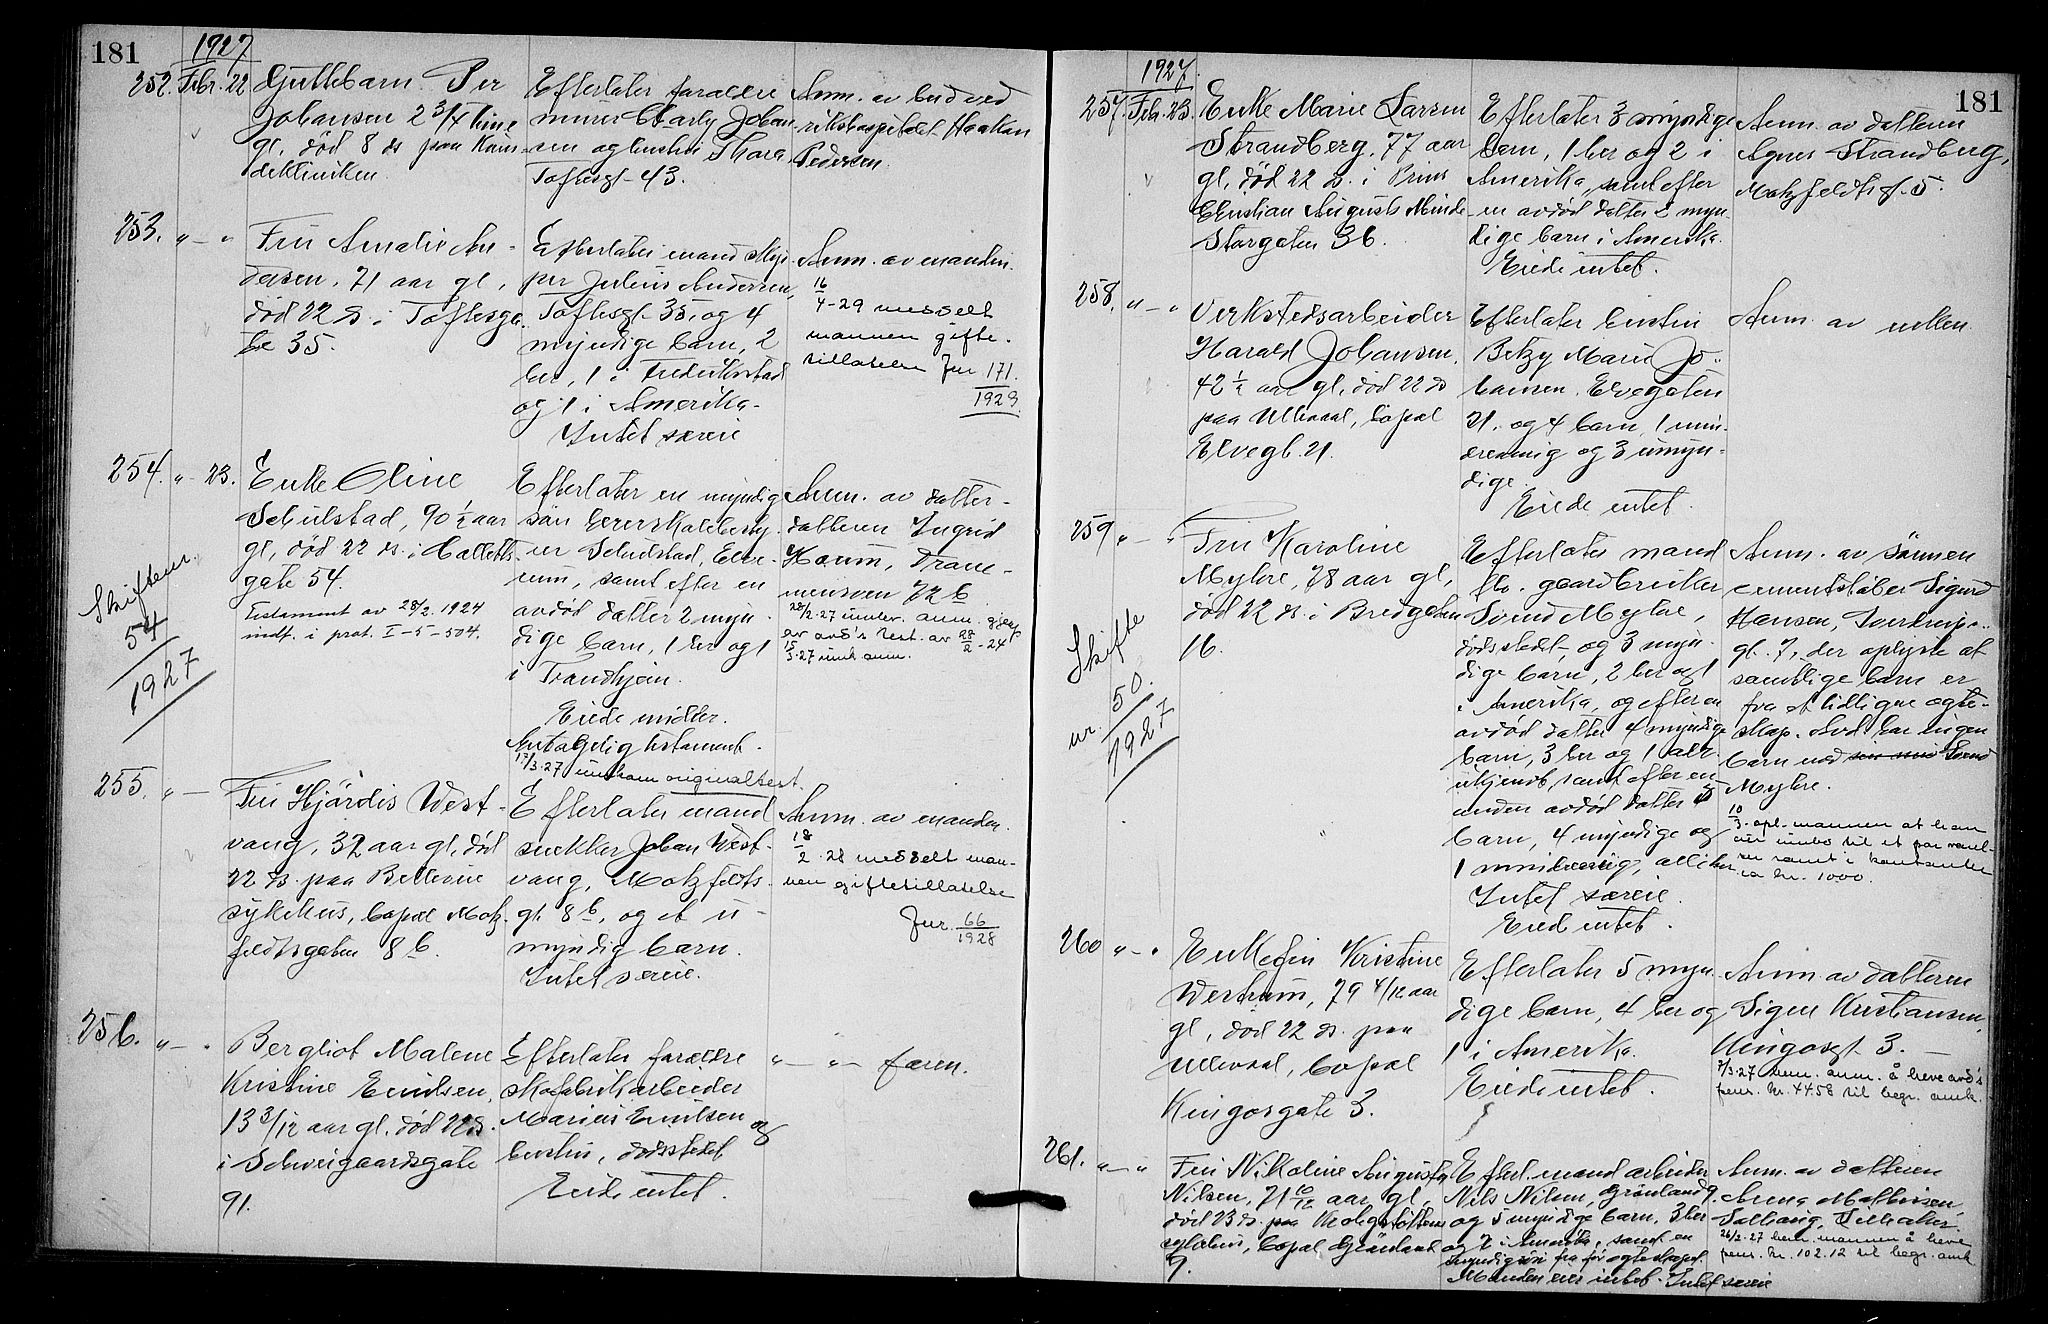 181
1927
252. Febr. 22
Guttebarn Per
Johansen 2 3/4 time
gl. død 8 ds paa Kvin-
deklinikken.
Efterlater forældre
murer Charly Johan-
sen og hustru Thora
Toftesgt 43.
Anm. av bud ved
rikshospitalet Haakon
Pedersen.
253. " — "
Fru Amalie An-
dersen, 71 aar gl,
død 22 ds. i Toftesga-
te 35.
Efterlater mand
Julius Andersen,
Toftesgt 35, og 4
myndige barn, 2
her, 1 i Fredrikstad
og 1 i Amerika.
Intet særeie
Anm. av manden.
16/4-29 meddelt
mannen gifte-
tillatelse Jur 171
1929
254. " - 23.
Enke Oline
Schulstad, 90 1/2 aar
gl, død 22 ds. i Colletts
gate 54.
Testament av 28/2 1924
indf. i prot. I-5-504.
Skiftenr.
54
1927
Efterlater en myndig
søn
Schulstad, Elve-
rum, samt efter en
avdød datter 2 myn-
dige barn, 1 her og 1
i Trondhjem.
Eiede midler.
Antagelig testament.
17/3-27 innkom originaltest.
Anm. av datter-
datteren Ingrid
Houm, Dram-
mensvn 72 b
28/2-27 innlev. anm. gjenp
av avd's test. av 28/2-24
15/3-27 innk anm.
255. " —
Fru Hjørdis West-
vang, 32 aar gl, død
22 ds. paa Bellevue
sykehus, bopæl Motz-
feldtsgaten 8 b.
Efterlater mand
snekker Johan West-
vang, Motzfeldts-
gt 8 b, og et u-
myndig barn.
Intet særeie.
Anm. av manden.
18/2-28 meddelt man-
nen giftetillatelse
Jur. 66
1928
256. " — "
Bergliot Malene
Kristine Emilsen,
13 3/12 aar gl. død 22 ds.
i Schweigaardsgate
91.
Efterlater forældre
skofabrikarbeider
Marius Emilsen og
hustru, dødsstedet
Eiede intet.
" — " — faren.
181
1927.
257. Febr. 23.
Enke Marie Larsen
Strandberg, 77 aar
gl, død 22 ds. i Prins
Christian Augusts Minde
Storgaten 36.
Efterlater 3 myndige
barn, 1 her og 2 i
Amerika, samt efter
en avdød datter 2 myn-
dige barn i Amerika.
Eiede intet.
Anm. av datteren
Agnes Strandberg,
Motzfeldtsgt. 5.
258. " — "
Verkstedsarbeider
Harald Johansen,
42 1/2 aar gl, død 22 ds
paa Ullevaal, bopæl
Elvegt. 21.
Efterlater hustru
Betzy Marie Jo-
hansen, Elvegaten
21, og 4 barn, 1 min-
dreaarig og 3 umyn-
dige.
Eiede intet.
Anm. av enken
259 " — "
Fru Karoline
Myhre, 78 aar gl,
død 22 ds. i Bredgaten
16.
Skifte
nr. 50.
1927
Efterlater mand
fhv. gaardbruker
Svend Myhre,
dødsstedet, og 3 myn-
dige barn, 2 her og 1
i Amerika, og efter en
avdød datter 4 myndige
barn, 3 her og 1 adr.
ukjendt, samt efter en
anden avdød datter 5
barn, 4 myndige og
1 mindreaarig, alle her
Intet særeie.
Eied intet.
Anm. av sønnen
cementstøber Sigurd
Hansen, Sverdrups-
gt. 7, der oplyste at
samtlige barn er
fra et tidligere egte-
skap. Avd har ingen
barn med Svend
Myhre.
10/3. opl. mannen at han
eier innbo til et par værel-
ser samt i kontanter
ca kr. 1000.
260 " — "
Enkefru Kristine
Westrum, 79 4/12 aar
gl, død 22 ds. paa
Ullevaal, bopæl
Kingosgate 3.
Efterlater 5 myn-
dige barn, 4 her og
1 i Amerika.
Eiede intet.
Anm. av datteren
Signe Kristiansen,
Kingosgt 3.
7/3-27 bem. anm. å heve avd's
pens. kr. 44.58 til begr. omk.
261. " — "
Fru Nikoline Augusta
Nilsen, 71 10/12 aar gl,
død 23 ds. paa Krohgstøttens
sykehus, bopæl Grønland
9.
Efterl. mand arbeider
Nils Nilsen, Grønland 9,
og 5 myndige barn, 3 her
og 2 i Amerika, samt en
myndig søn fra før egteskapet.
Manden eier intet. Intet særeie
Anm. av datteren
Anna Mathisen,
26/2-27 bem. mannen å heve
pens. kr. 102.12 til begr. omk